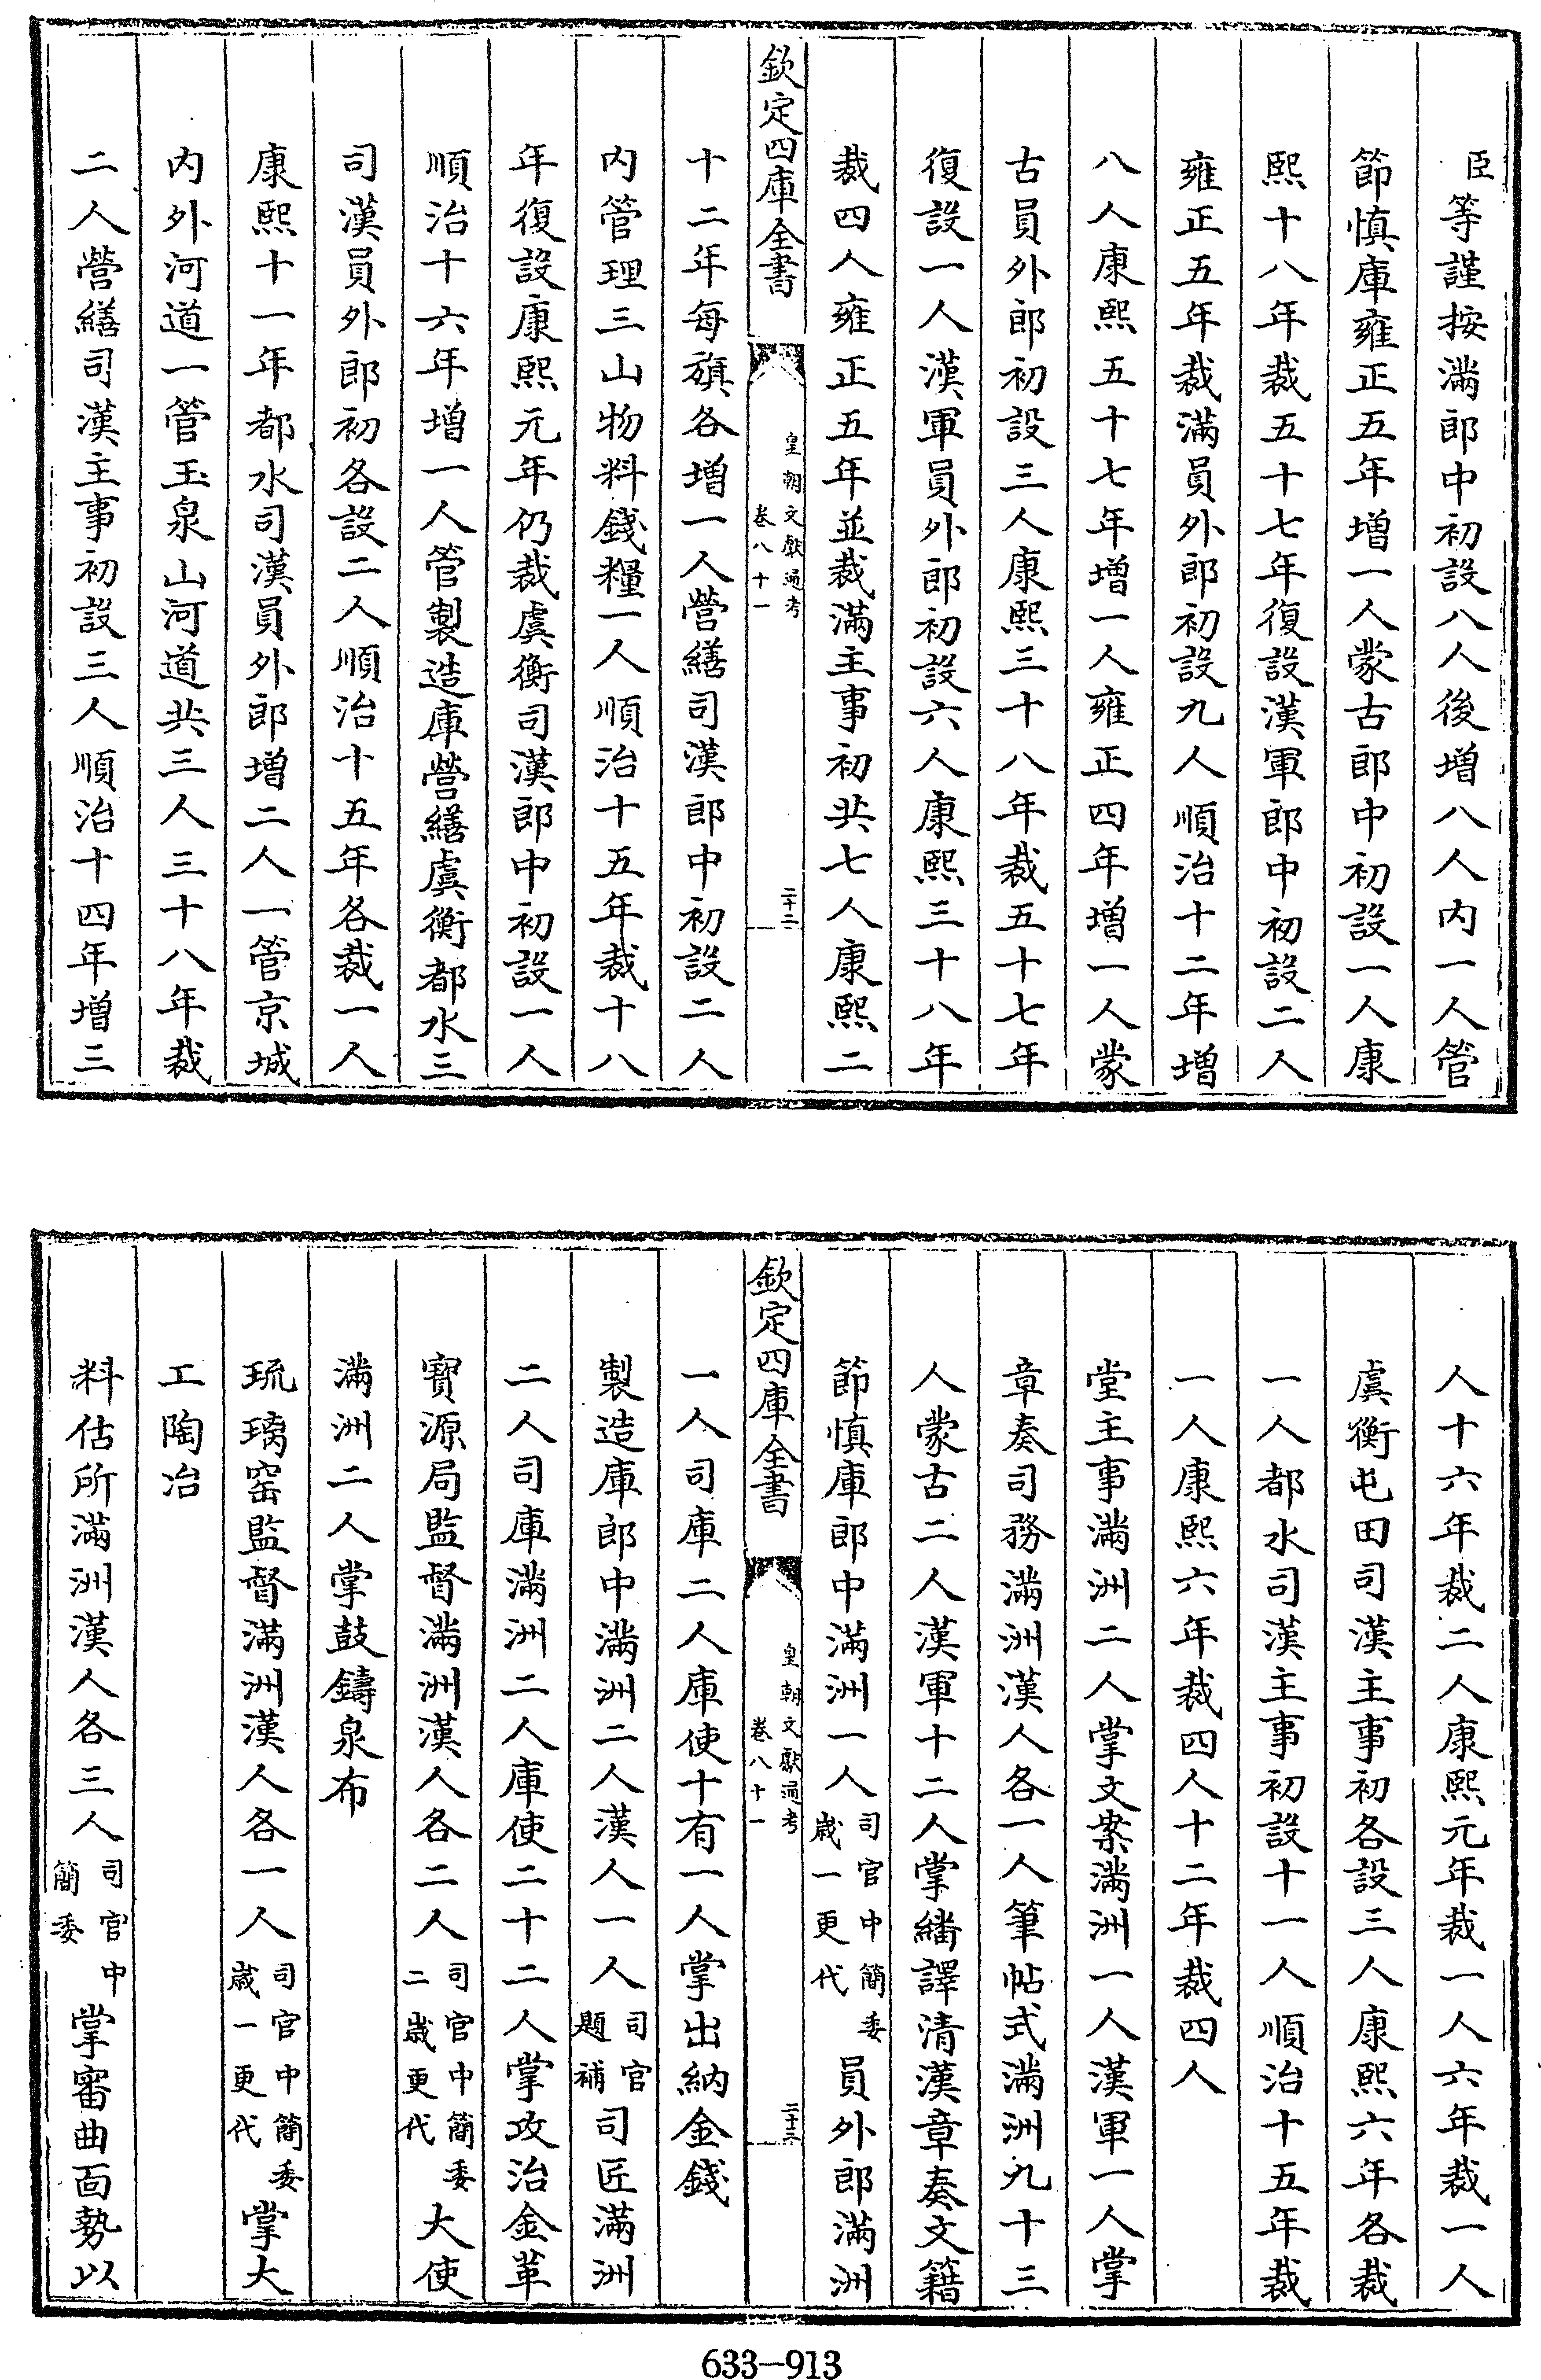 臣等謹按滿郎中初設八人後增八人内一人管
節慎庫雍正五年增一人蒙古郎中初設一人康
熙十八年裁五十七年復設漢軍郎中初設二人
雍正五年裁滿員外郎初設九人順治十二年增
八人康熙五十七年增一人雍正四年增一人蒙
古員外郎初設三人康熙三十八年裁五十七年
復設一人漢軍員外郎初設六人康熙三十八年
裁四人雍正五年並裁滿主事初共七人康熙二
欽定四庫全書
皇朝文獻通考
卷八十一
二十二
十二年每旗各增一人營繕司漢郎中初設二人
内管理三山物料錢糧一人順治十五年裁十八
年復設康熙元年仍裁虞衡司漢郎中初設一人
順治十六年增一人管製造庫營繕虞衡都水三
司漢員外郎初各設二人順治十五年各裁一人
康熙十一年都水司漢員外郎增二人一管京城
内外河道一管玉泉山河道共三人三十八年裁
二人營繕司漢主事初設三人順治十四年增三
人十六年裁二人康熙元年裁一人六年裁一人
虞衡屯田司漢主事初各設三人康熙六年各裁
一人都水司漢主事初設十一人順治十五年裁
一人康熙六年裁四人十二年裁四人
堂主事滿洲二人掌文案滿洲一人漢軍一人掌
章奏司務滿洲漢人各一人筆帖式滿洲九十三
人蒙古二人漢軍十二人掌繙譯清漢章奏文籍
節慎庫郎中滿洲一人司官中簡委歲一更代員外郎滿洲
欽定四庫全書
皇朝文獻通考
卷八十一
二十三
一人司庫二人庫使十有一人掌出納金錢
製造庫郎中滿洲二人漢人一人司官題補司匠滿洲
二人司庫滿洲二人庫使二十二人掌攻治金革
寶源局監督滿洲漢人各二人司官中簡委二歲更代大使
滿洲二人掌鼓鑄泉布
琉璃窑監督滿洲漢人各一人司官中簡委歲一更代掌大
工陶冶
料估所滿洲漢人各三人司官中簡委掌審曲面勢以
633-913